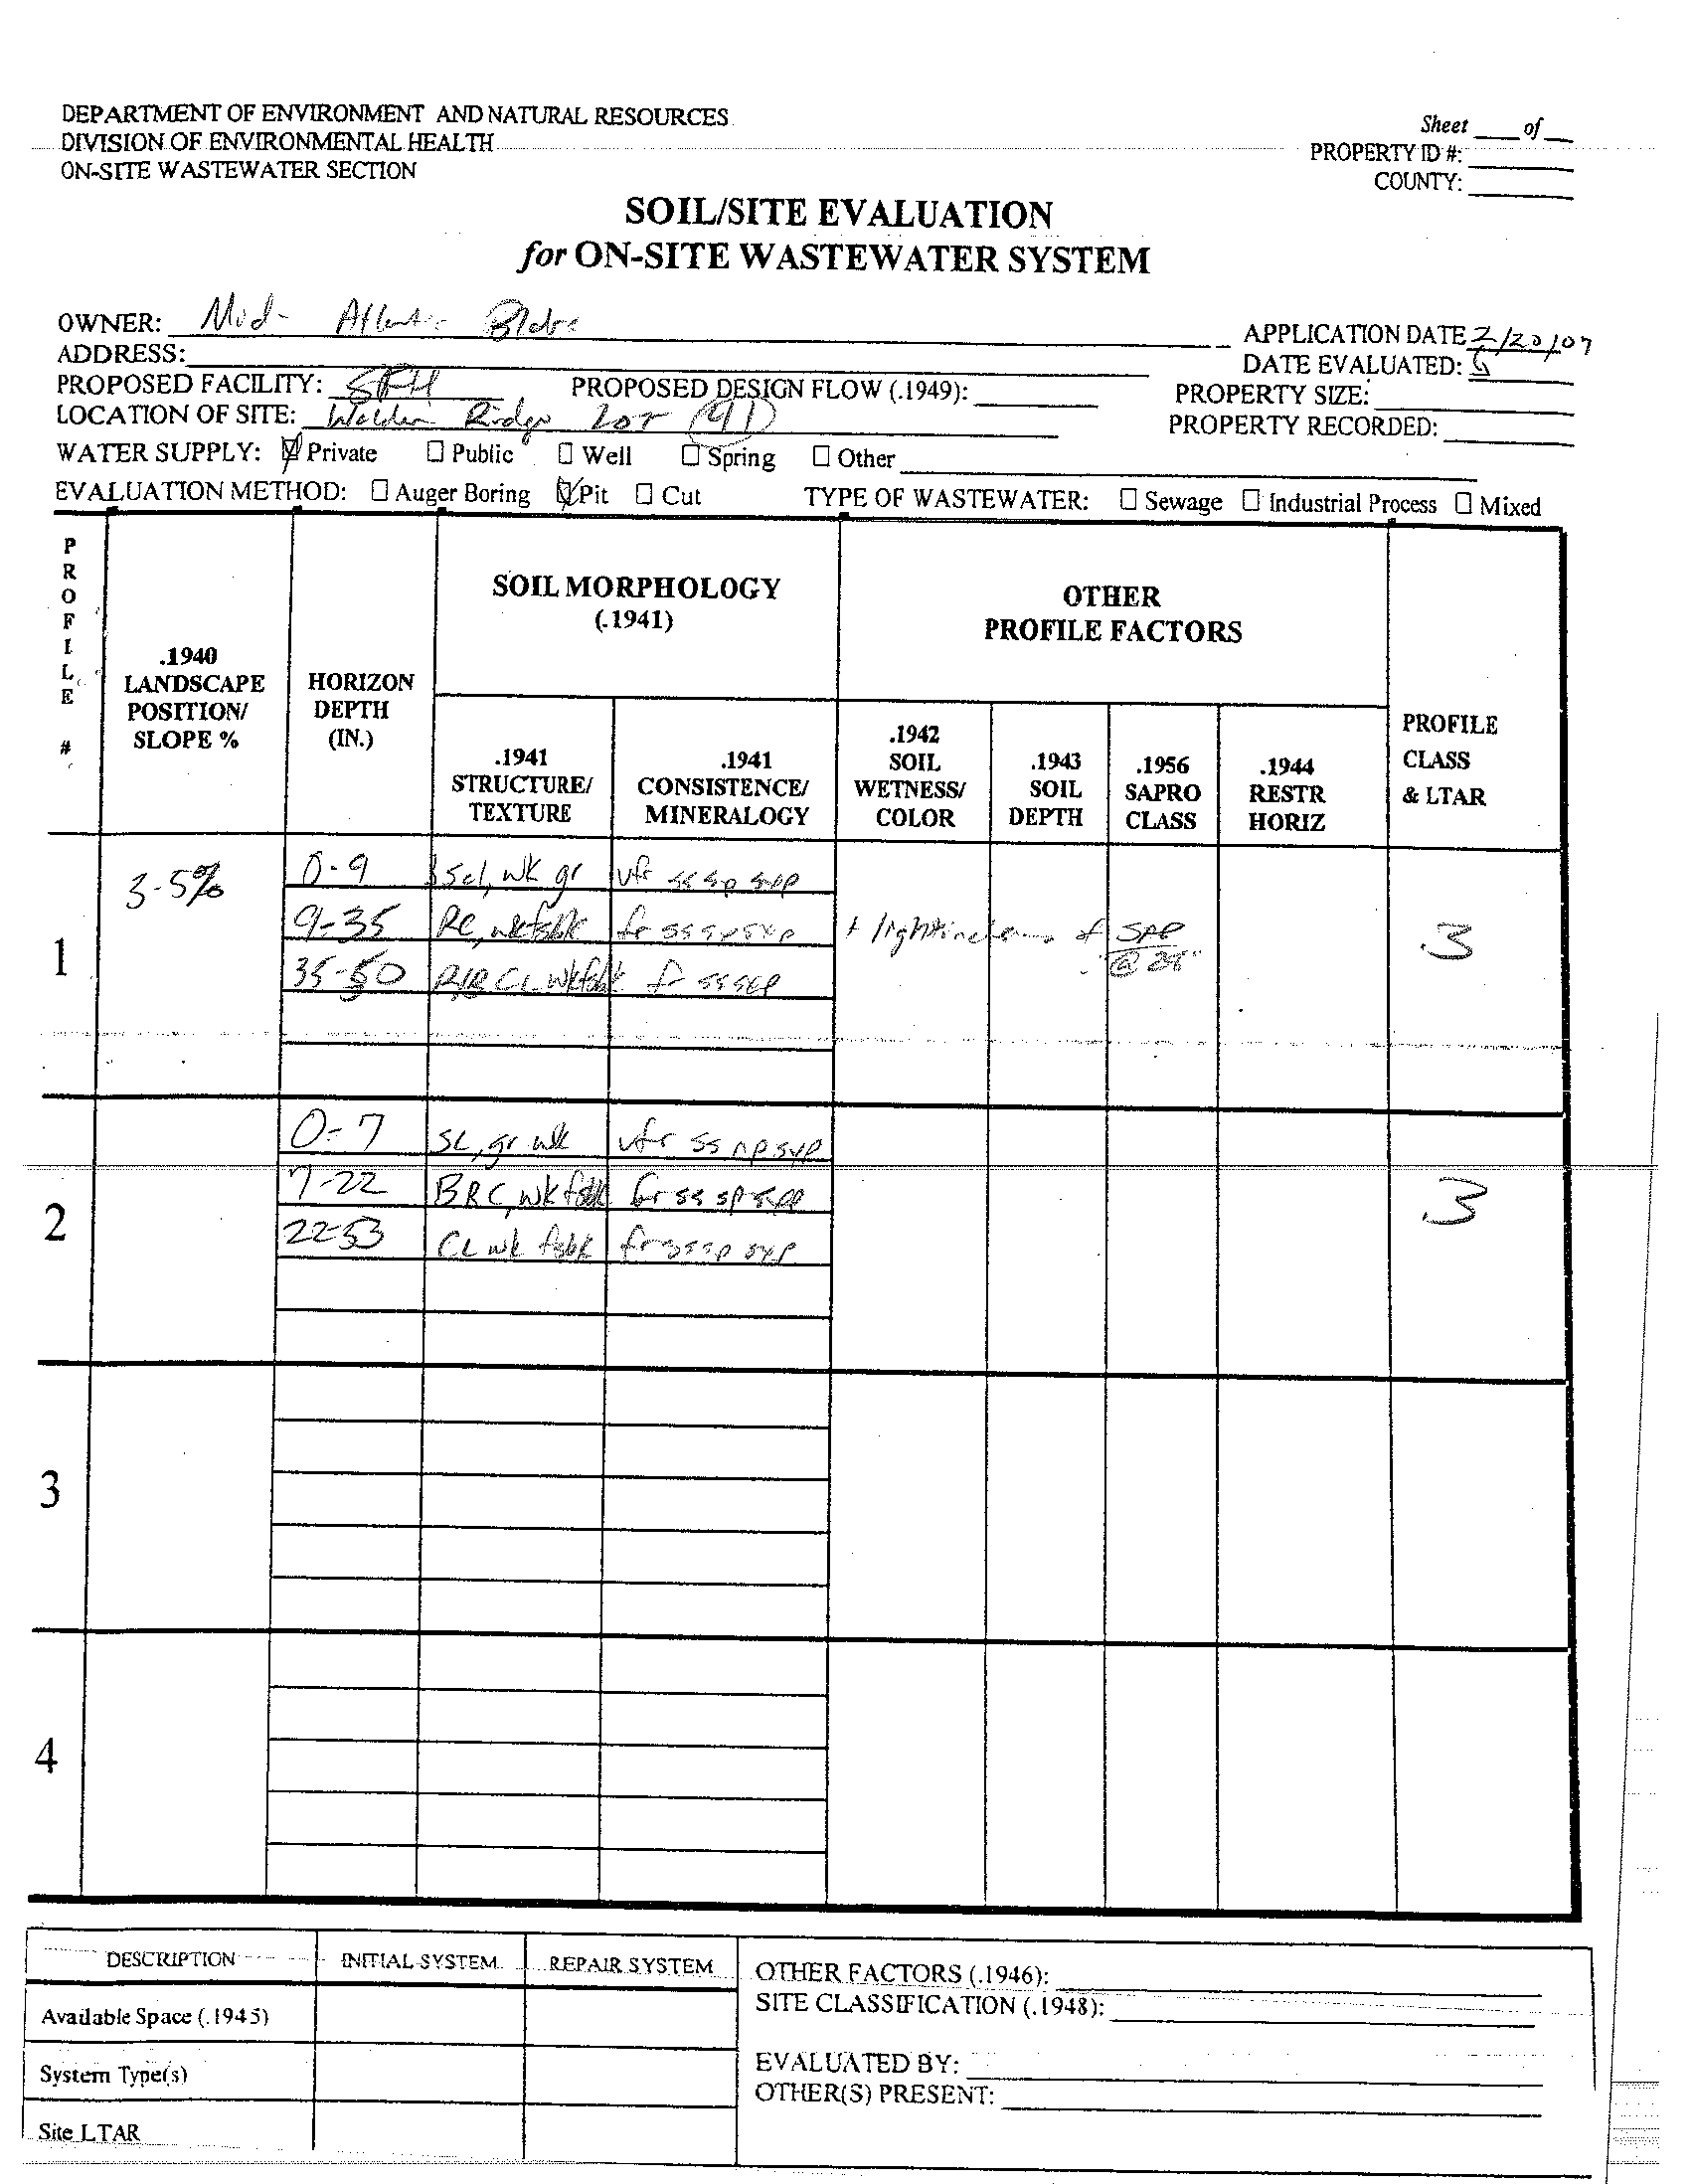 DEPARTMENT OF ENVIRONMENT AND NATURAL RESOURCES
DIVISION OF ENVIRONMENTAL HEALTH
ON-SITE WASTEWATER SECTION
Sheet ___ of ___
PROPERTY ID #:
COUNTY:
SOIL/SITE EVALUATION
for ON-SITE WASTEWATER SYSTEM
OWNER: Mid-Atlantic Bldrs
APPLICATION DATE 2/20/07
ADDRESS:
DATE EVALUATED:
PROPOSED FACILITY: SFH PROPOSED DESIGN FLOW (.1949):
PROPERTY SIZE:
LOCATION OF SITE: Walden Ridge Lot 91
PROPERTY RECORDED:
WATER SUPPLY: ☑ Private ☐ Public ☐ Well ☐ Spring ☐ Other
EVALUATION METHOD: ☐ Auger Boring ☑ Pit ☐ Cut TYPE OF WASTEWATER: ☐ Sewage ☐ Industrial Process ☐ Mixed
PROFILE #
.1940 LANDSCAPE POSITION/ SLOPE %
HORIZON DEPTH (IN.)
SOIL MORPHOLOGY (.1941)
.1941 STRUCTURE/ TEXTURE
.1941 CONSISTENCE/ MINERALOGY
OTHER PROFILE FACTORS
.1942 SOIL WETNESS/ COLOR
.1943 SOIL DEPTH
.1956 SAPRO CLASS
.1944 RESTR HORIZ
PROFILE CLASS & LTAR
1
3-5%
0-9 Scl, wk gr vfr ss sp sxp
9-35 RC, wkfsbk fr ss sp sxp
35-50 CL wkfsbk fr ss sxp
of SAP
3
2
0-7 SL, gr wk vfr ss np sxp
7-22 BRC, wk fsbk fr ss sp sxp
22-53 CL wk fsbk fr ss sp sxp
3
3
4
DESCRIPTION INITIAL SYSTEM REPAIR SYSTEM
Available Space (.1945)
System Type(s)
Site LTAR
OTHER FACTORS (.1946):
SITE CLASSIFICATION (.1948):
EVALUATED BY:
OTHER(S) PRESENT: